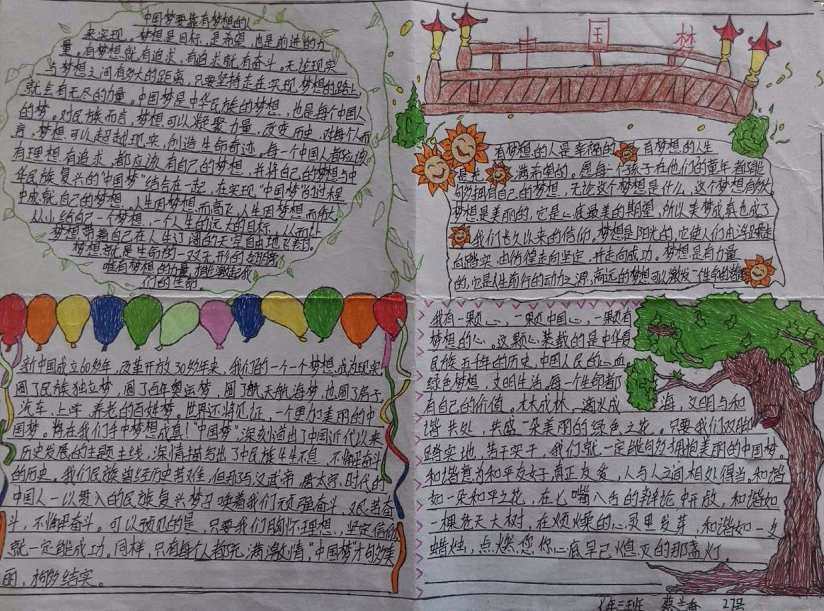 中国梦要靠有梦想的人
来实现。梦想是目标,是希望,也是前进的力
量。有梦想就有追求,有追求就有奋斗。无论现实
与梦想之间有多大的距离,只要坚持走在实现梦想的路上,
就会有无尽的力量。中国梦是中华民族的梦想,也是每个中国人
的梦。对民族而言,梦想可以凝聚力量,改变历史,对每个人而
言,梦想可以超越现实,创造生命奇迹。每一个中国人都应该
有理想有追求,都应该有自己的梦想,并将自己的梦想与中
华民族复兴的“中国梦”结合在一起,在实现“中国梦”的过程
中成就自己的梦想,人生因梦想而高飞,人生因梦想而伟大
从小给自己一个梦想,一个人生的远大的目标,从而让
梦想带着自己在人生辽阔的天空自由地飞翔。
梦想就是生命的一双无形的翅膀
唯有梦想的力量,才能激起我
们的生命。
中 国 梦
有梦想的人是幸福的 有梦想的人生
是 满希望的。愿每一个孩子在他们的童年都能
够拥有自己的梦想,无论这个梦想是什么,这个梦想有多大
梦想是美丽的,它是心底最美的期望,所以美梦成真也成了
我们长久以来的信仰。梦想是阳光的,它使人们由浮躁走
向踏实,由彷徨走向坚定,并走向成功。梦想是有力量
的,也是人生前行的动力之源,高远的梦想可以激发一个生命的
新中国成立60多年,改革开放30多年来,我们的一个个梦想成为现实
圆了民族独立梦,圆了百年奥运梦,圆了航天航海梦,也圆了房子
汽车、上学、养老的百姓梦。世界还将见证,一个更加美丽的中
国梦。将在我们手中梦想成真!“中国梦”深刻道出了中国近代以来
历史发展的主题主线,深情描绘出了中民族生生不息、不懈奋斗
的历史。我们民族曾经历苦难,但那与汉武帝、唐太宗时代的
中国人一以贯入的民族复兴梦召唤着我们顽强奋斗、艰苦奋
斗,不懈奋斗。可以预见的是,只要我们胸怀理想,坚定信仰
就一定能成功。同样,只有每个人都充满激情,“中国梦”才够多美
丽,才够多结实。
我有一颗心,一颗中国心,一颗有
梦想的心。这颗心装载的是中华民
民族五千年的历史,中国人民的心血
绿色梦想,文明生活,每一个生命都
有自己的价值。木木成林,滴水成 海,文明与和
谐共处,共盛一朵美丽的绿色之花。只要我们双脚
踏实地,苦干实干,我们就一定能够多拥抱美丽的中国梦。
和谐意为和平友好,真正友爱,人与人之间相处得当。和谐
如一朵和平之花,在七嘴八舌的辩论中开放,和谐如
一棵参天大树,在烦燥的心灵里发芽,和谐如一支
蜡烛,点燃您你心底早已熄灭的那盏灯
年三班 27号